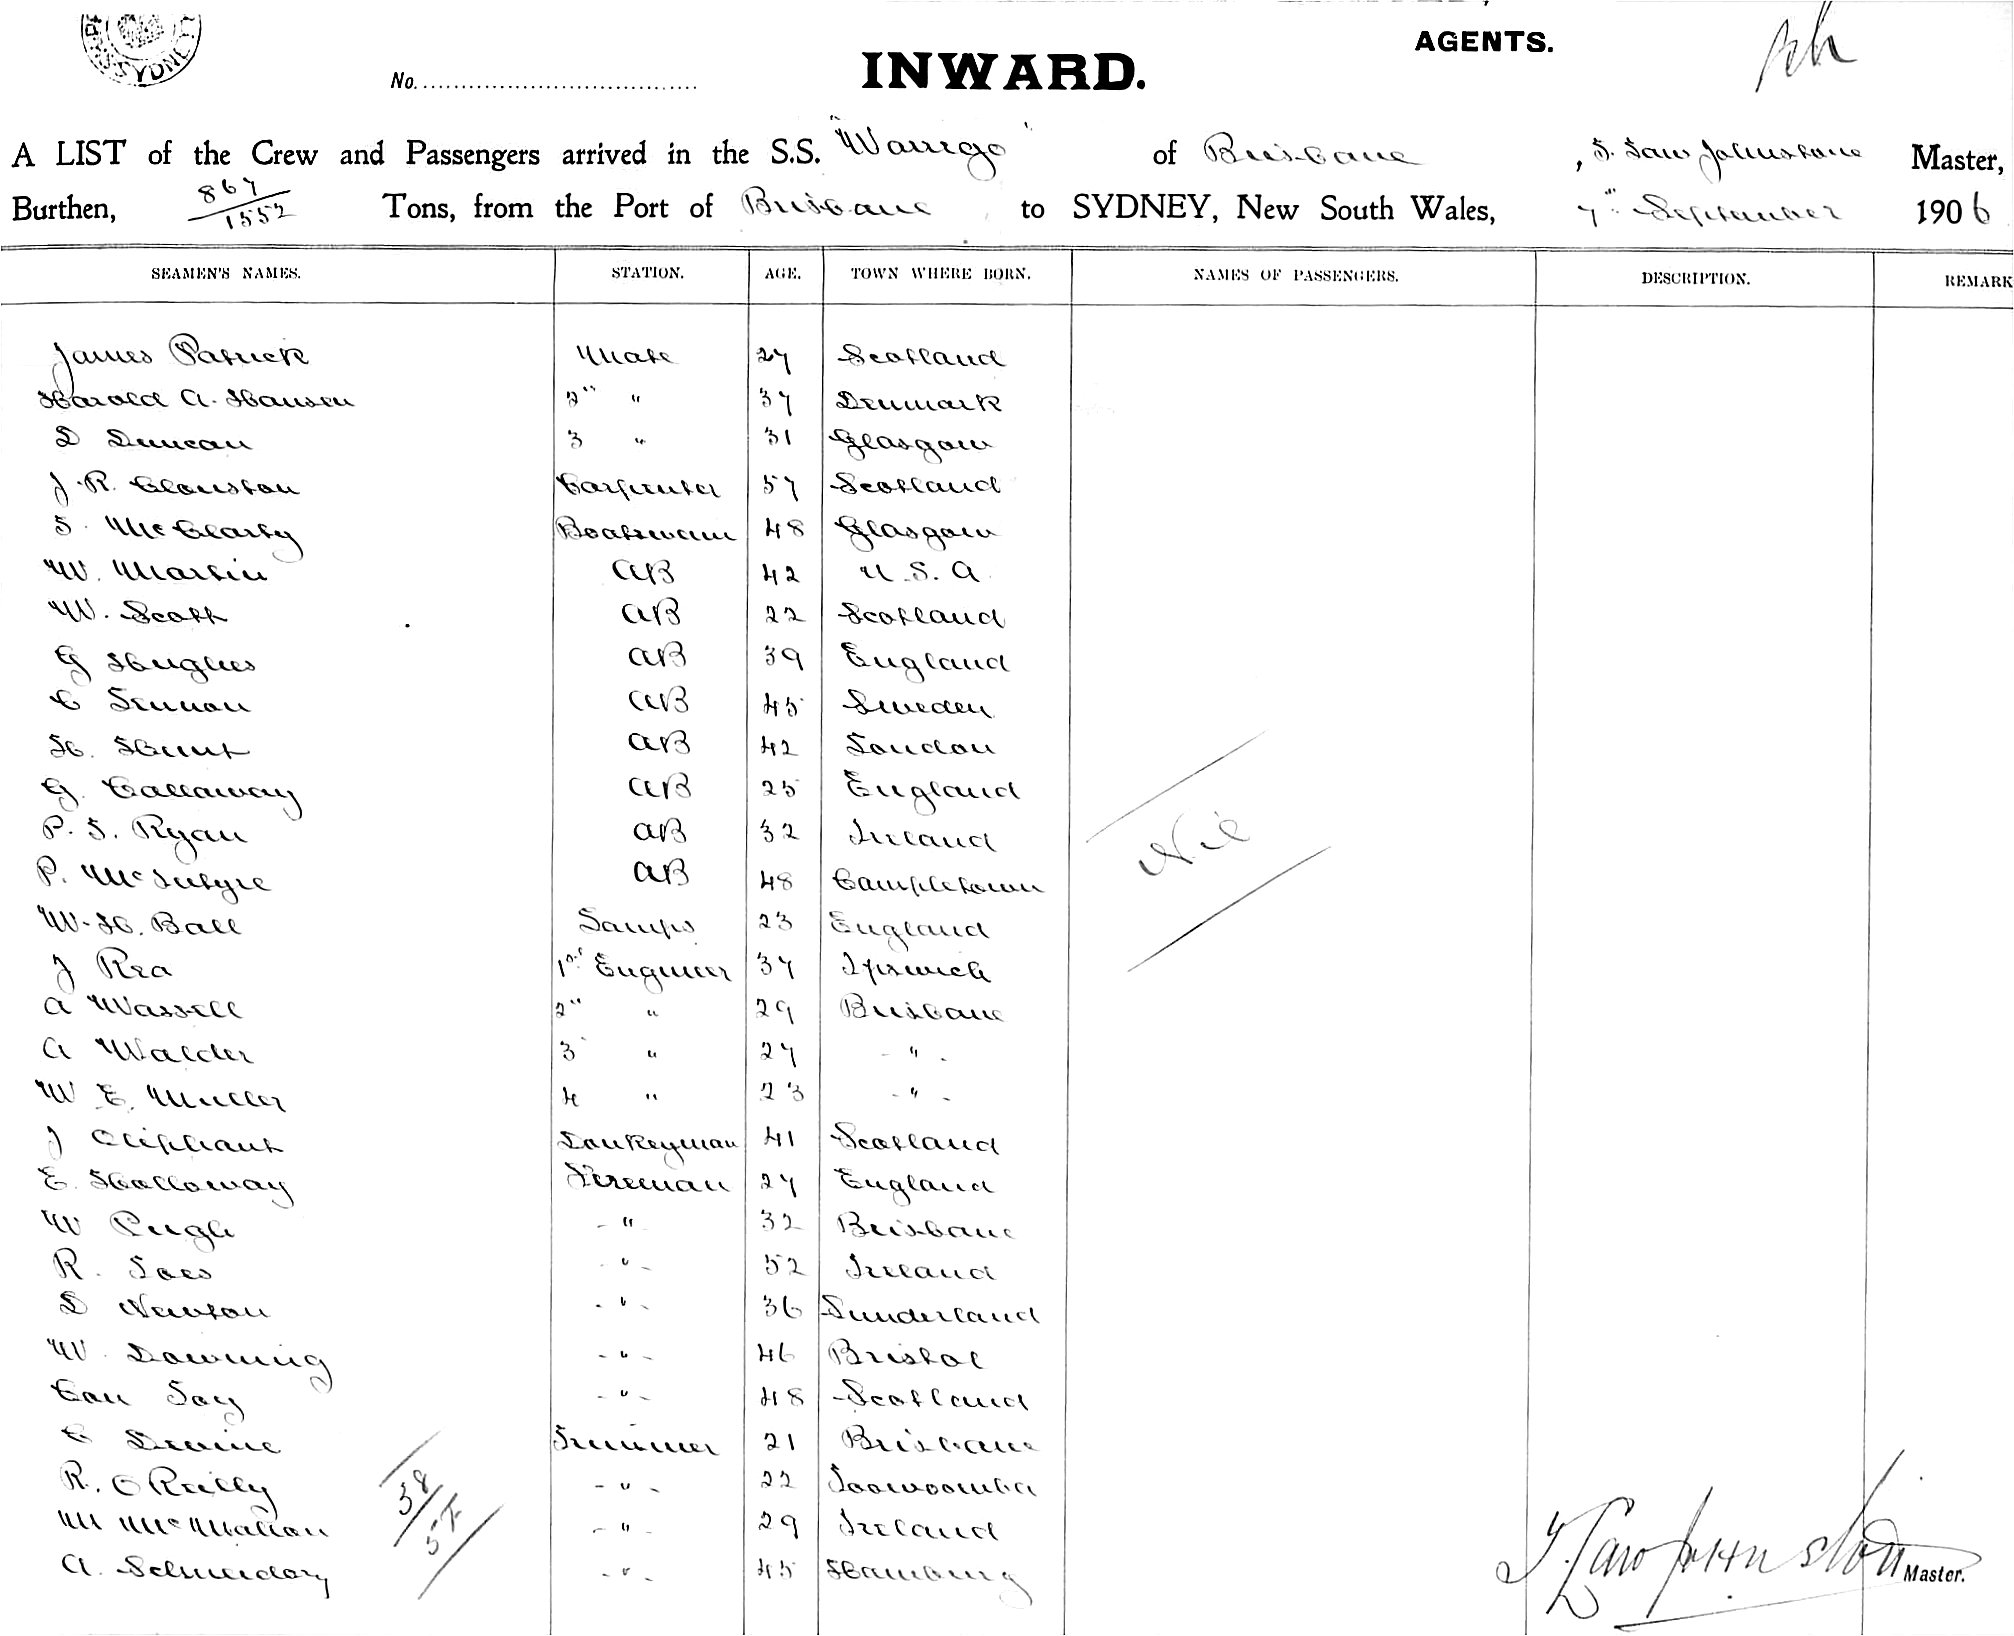 SYDNEY
No.
INWARD.
AGENTS.
A LIST of the Crew and Passengers arrived in the S.S. "Warrego" of Brisbane, T. Law Johnstone Master,
Burthen, 867/1552 Tons, from the Port of Brisbane, to SYDNEY, New South Wales, 7th September 1906
SEAMEN'S NAMES. STATION. AGE. TOWN WHERE BORN. NAMES OF PASSENGERS. DESCRIPTION. REMARK
James Patrick Mate 27 Scotland
Harold A. Hansen 2" " 37 Denmark
D Duncan 3 " 31 Glasgow
J. R. Clouston Carpenter 57 Scotland
T. McClarty Boatswain 48 Glasgow
W. Martin AB 42 U.S.A
W. Scott AB 22 Scotland
G Hughes AB 39 England
C Lennon AB 45 Sweden
H. Hunt AB 42 London
G. Callaway AB 25 England
P. S. Ryan AB 32 Ireland
P. McIntyre AB 48 Campletown
Nil
W. H. Ball Lamps 23 England
J Rea 1st Engineer 37 Ipswich
A Wassell 2" " 29 Brisbane
A Walder 3 " 27 - " -
W E. Muller 4 " 23 - " -
J Oliphant Donkeyman 41 Scotland
E. Holloway Fireman 27 England
W Pugh - " 32 Brisbane
R. - " - 52 Ireland
D Newton - " - 36 Sunderland
W. Downing - " - 46 Bristol
- " - 48 Scotland
C Devine Trimmer 21 Brisbane
R. O'Reilly - " - 22 Toowoomba
M McMahon - " - 29 Ireland
A. - " - 45 Hamburg
38/57
T. Law Johnston Master.